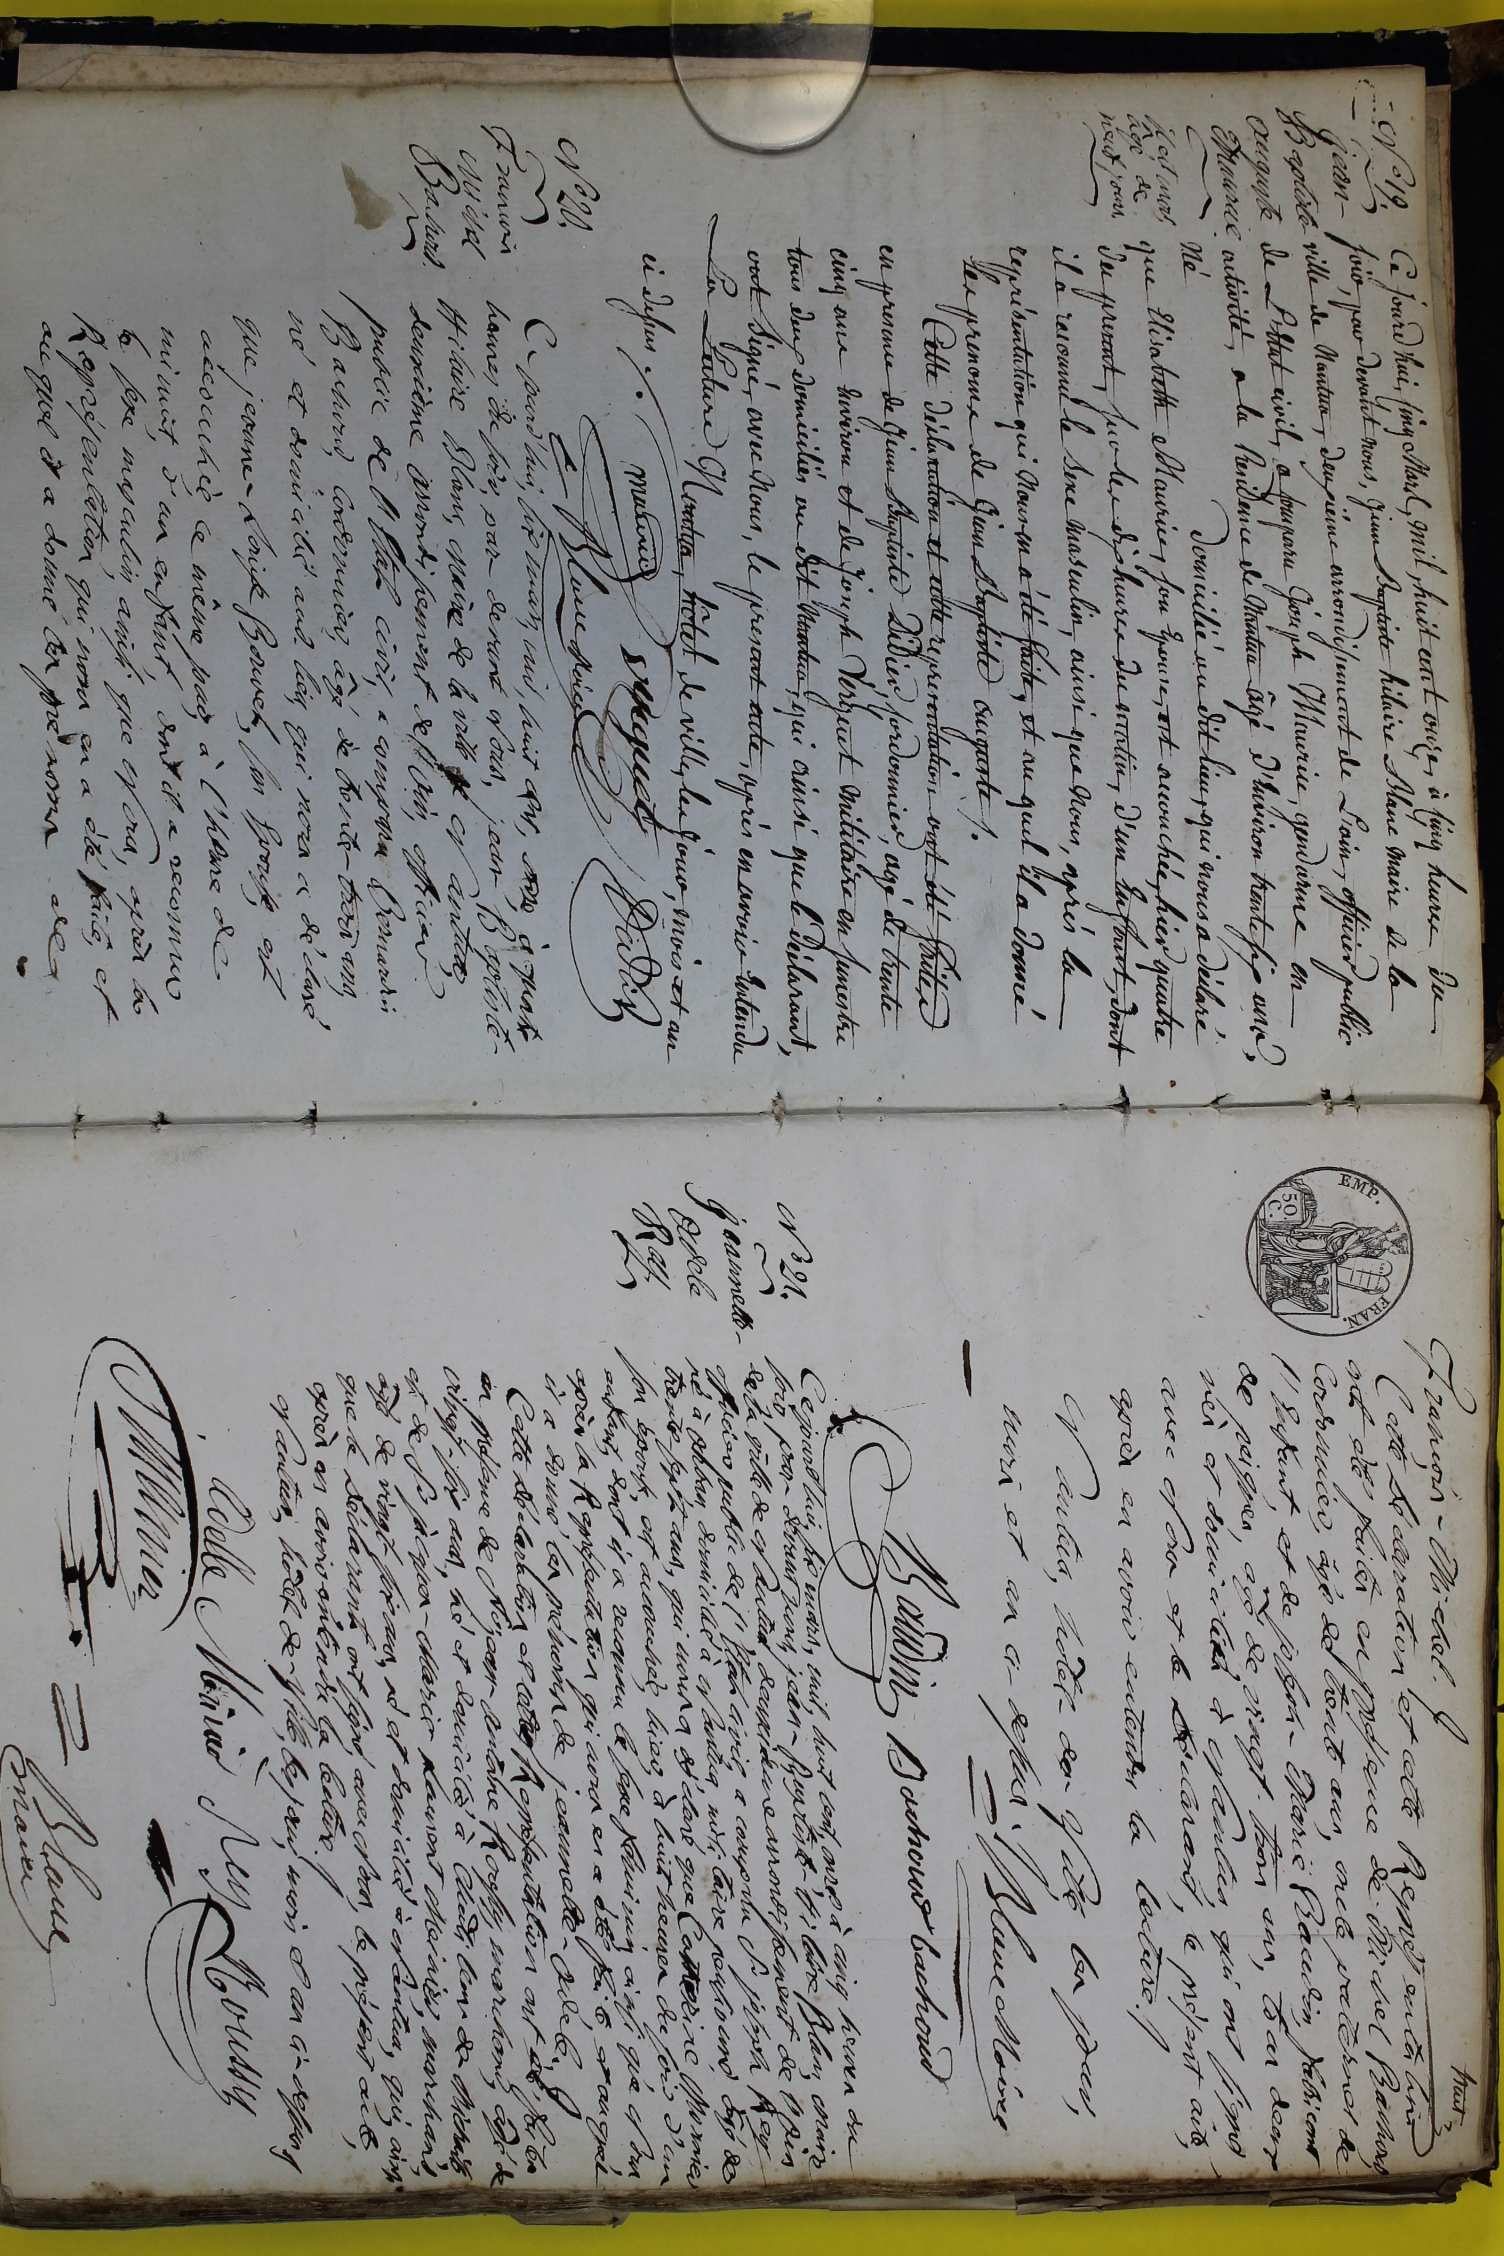 N° 19.
Jean-
Baptiste
auguste
Maurice
Né
il est né
âgé de
neuf jours
Ce jourd'hui, cinq Mars, mil, huit cent onze, à cinq heures du
soir, par devant nous, Jean Baptiste hilaire Blanc maire de la
ville de Nantua, deuxième arrondissement de L'ain, officier public
de L'Etat civil, a comparu Joseph Maurice, gendarme en
activité, a la Résidence de Nantua âgé d'environ trente six ans,
domicilié au dit lieu, qui nous a déclaré
que Elisabeth Maurice, son épouse, est accouchée, hier quatre
du présent, sur les dix heures du matin, d'un Enfant, dont
il a reconnu le sexe masculin, ainsi que Nous, après la
représentation qui Nous en a été faite, et au quel il a donné
les prenoms de Jean Baptiste auguste /.
Cette déclaration et cette représentation ont été faites
en presence de Jean Baptiste Didier, cordonnier, agé de trente
cinq ans environ et de Joseph Serguet militaire en semestre
tous deux domiciliés au dit Nantua, qui ainsi que le déclarant,
ont Signé, avec Nous, le present acte, après en avoir Entendu
La Lecture Nantua, hôtel de ville, les jour, mois et an
ci dessus /.
maurice serguet Didier
Blanc maire
N° 20.
Francois
Michel
Bachoud.
Ce jourd'hui six mars, mil, huit cent, onze à quatre
heures, de soir, par devant Nous, jean-Baptiste-
Hilaire Blanc, maire de la ville de Nantua
deuxième arrondissement de l'Ain, officier
public de l'Etat civil, a comparu Bernard
Bachoud, Cordonnier, âgé de trente-trois ans
né et domicilié aud. lieu, qui nous a déclaré
que jeanne-Louise Bouvet, son Epouse, est
accouchée ce même jour, à l'heure de
minuit, d'un enfant, dont il a reconnu
le sexe masculin, ainsi que Nous, après la
Représentation qui nous en a été faite, et
au quel il a donné les prénoms de
trente
EMP. FRAN.
50 C.
François-Michel. /
Cette Déclaration et cette Représentation
ont été faites en présence de Michel Bachoud
Cordonnier, âgé de trente ans, oncle paternel de
l'Enfant et de joseph-Marie Baudin fabricant
de peignes, âgé de vingt-trois ans, tous deux
nés et domiciliés à Nantua, qui ont signé
avec Nous et le Déclarant, le présent acte,
après en avoir entendu la lecture, /
Nantua, hôtel de Ville les jour,
mois et an ci-dessus /.
Blanc Maire
Baudin Bachoud bachoud
N° 21.
Jeannette-
Adèle
Rey.
Ce jourd'hui, six mars, mil, huit cent, onze à cinq heures du
soir, par devant Nous, jean-Baptiste-Hilaire Blanc, maire
de la ville de Nantua deuxième arrondissement de l'Ain
officier public de l'Etat civil, a comparu Sr. joseph Rey
né à domicilié à Nantua, militaire pensionné âgé de
trente sept ans, qui nous a déclaré que Catherine Munier
son Epouse, est accouchée, hier à huit heures du soir d'un
enfant, dont il a reconnu le sexe féminin, ainsi que Nous
après la Représentation qui nous en a été faite et auquel
il a donné, les prénoms de jeannette-Adèle. /
Cette déclaration et cette Représentation ont été faites
en présence de Sr. jean-antoine Roussy marchand, âgé de
vingt six ans, né et domicilié à
et de Sr. jacques-Marie-Laurent Meinier, marchand,
âgé de vingt six ans, né et domicilié à Nantua, qui, ainsi
que le déclarant ont signé avec Nous, le présent acte,
après en avoir entendu la lecture. /
Nantua, hôtel de ville, les jour, mois & an ci-dessus /
Rey Roussy
Blanc
maire